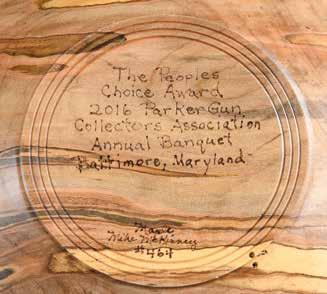 The Peoples
Choice Award
2016 Parker Gun
Collectors Association
Annual Banquet
Baltimore, Maryland
Mike McKinney
#464